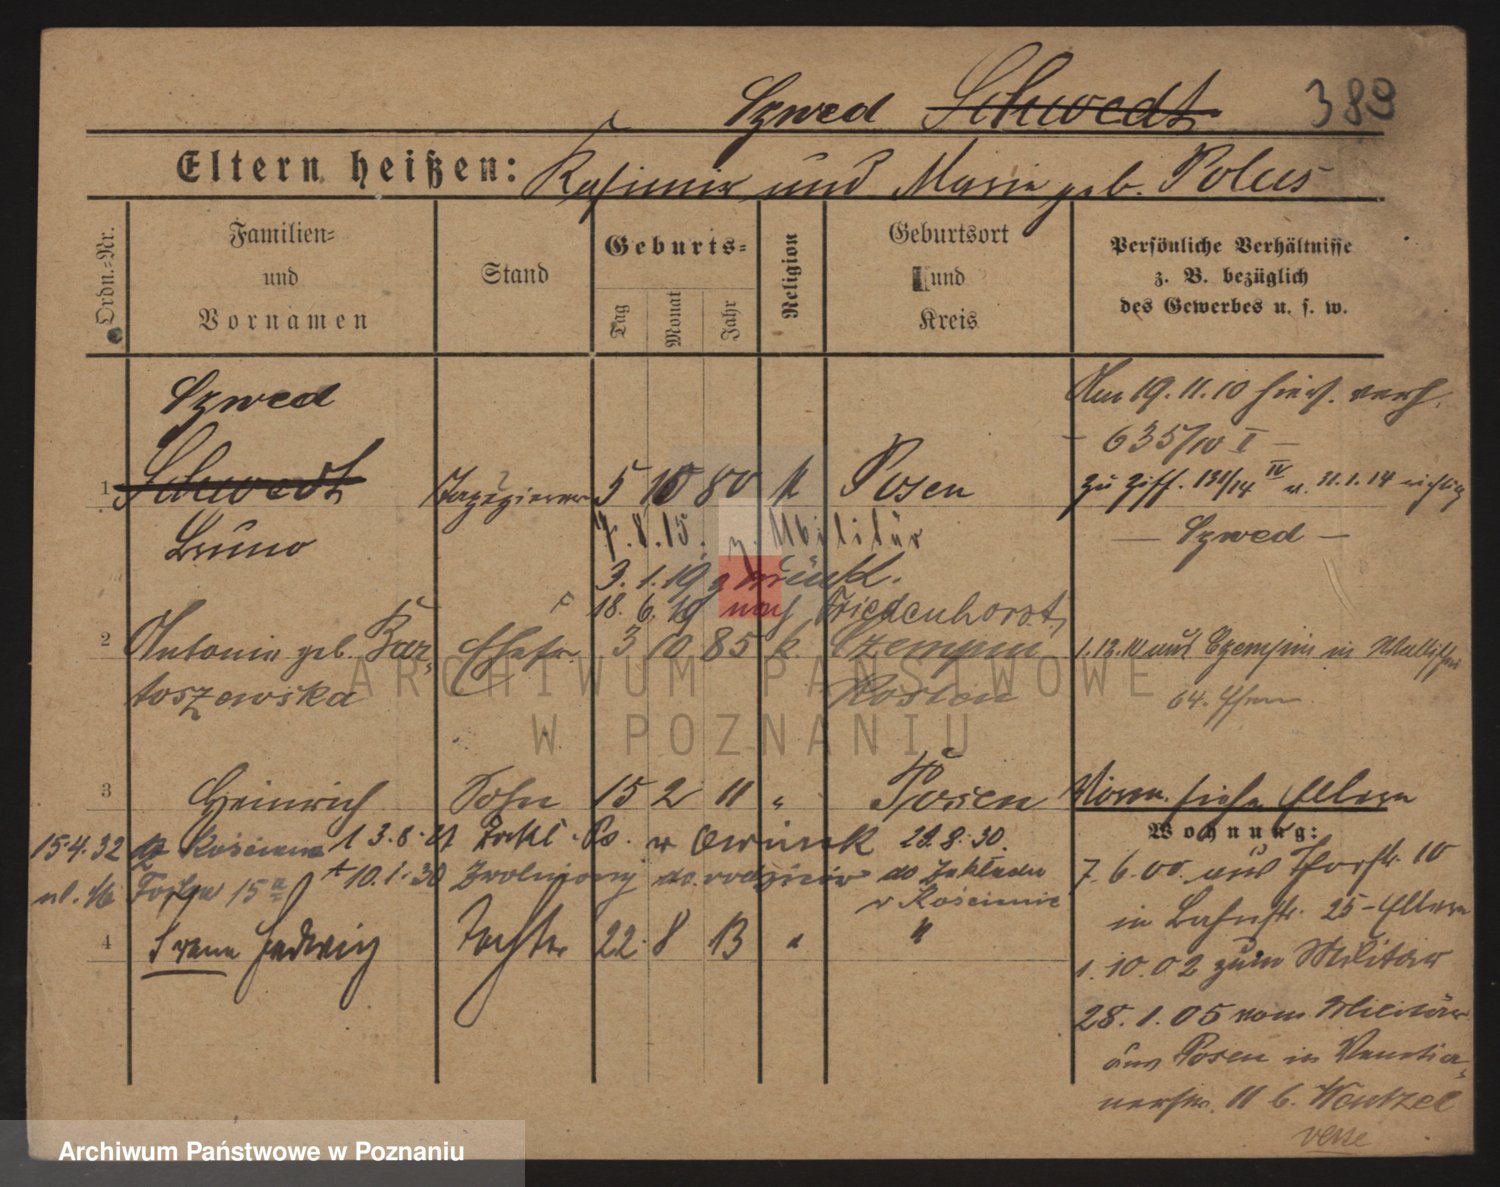 Szwed Schwedt 389
Eltern heißen: Kasimir und Marie geb. Polus
Ordn.-Nr.
Familien-
und
Vornamen
Stand
Geburts-
Tag
Monat
Jahr
Religion
Geburtsort
und
Kreis
Persönliche Verhältnisse
z. B. bezüglich
des Gewerbes u. s. w.
Szwed
Am 19.11.10 hier verh.
- 635/10 I -
1 Schwedt Tapezierer 5 10 80 k Posen
zu Ziff. 121/14 IV v. 21.1.14 richtig
Bruno
— Szwed —
7.8.15. z. Militär
3.1.19 zurück.
18.6.19 nach Friedenhorst
2 Antonie geb. Bar-
toszewska
Ehefr. 3 10 85 k. Czempin
Kosten
1.12.10 aus Czempin in
64. Ehem
3 Heinrich Sohn 15 2 11 " Posen
Vorm. siehe Eltern
Wohnung:
15.4.32 do Kościana 1 3.8.27 Zakł. Ps. w Owińsk 29.8.30.
ul. 15a + 10.1.30 Zwolniony do rodziców do Zakładu
w Kościanie
7.6.00. aus Thorstr. 10
in 25 - Eltern
4 Irene Hedwig Tochter 22 8 13 " "
1.10.02 zum Militär
28.1.05 vom Militär
aus Posen in Venetia-
nerstr. 11 b. Wentzel
verte
ARCHIWUM PAŃSTWOWE
W POZNANIU
Archiwum Państwowe w Poznaniu